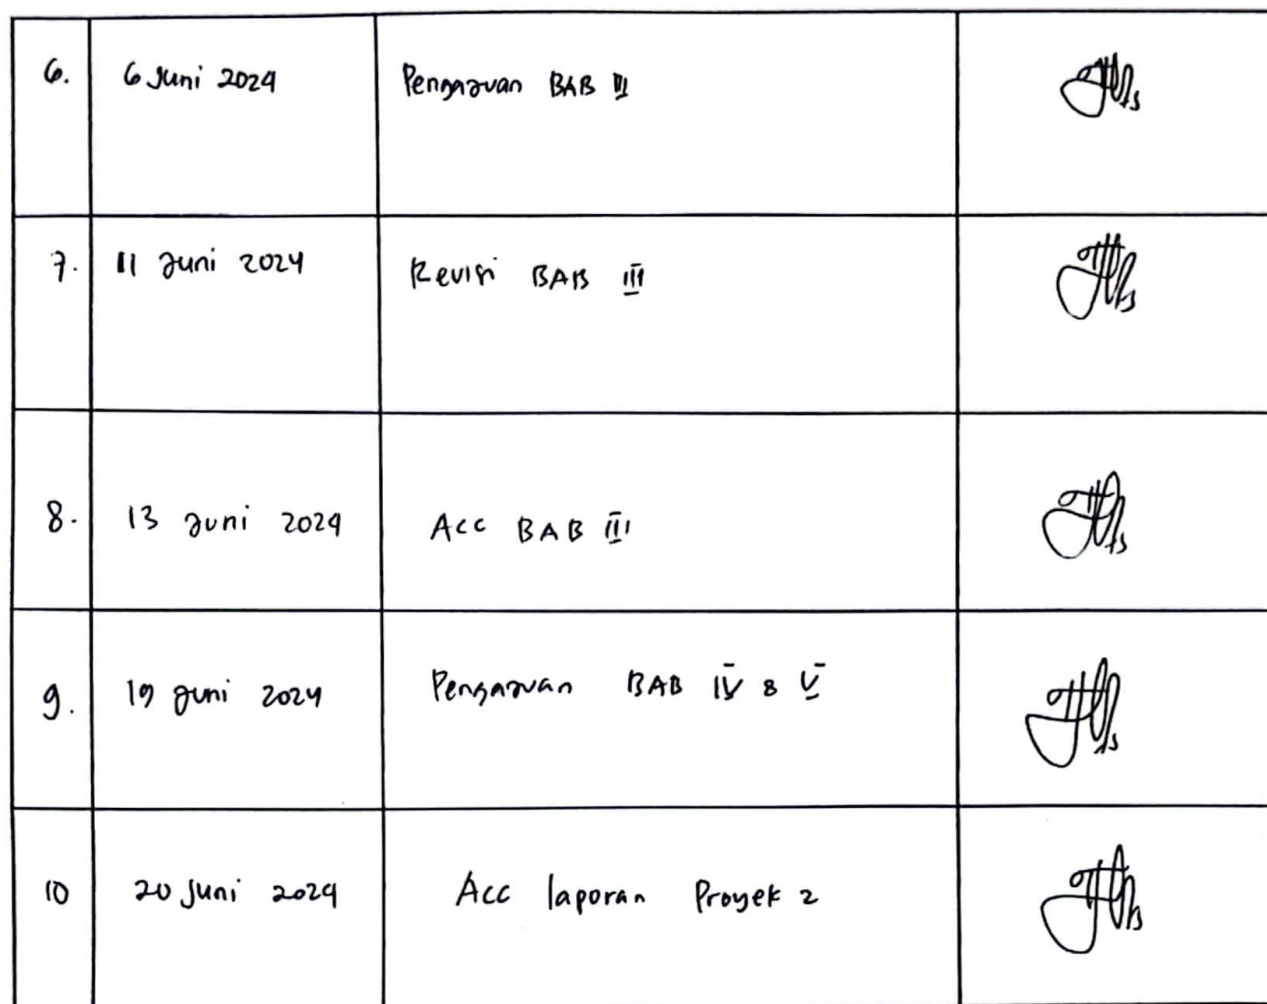 6. 6 Juni 2024 Pengajuan BAB III
7. 11 Juni 2024 Revisi BAB III
8. 13 Juni 2024 Acc BAB III
9. 19 Juni 2024 Pengajuan BAB IV & V
10 20 Juni 2024 Acc laporan Proyek 2